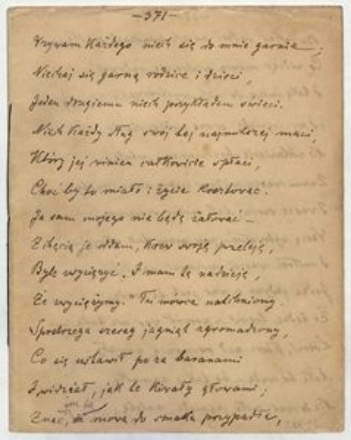 — 371 —
Wzywam każdego niech się do mnie garnie —;
Niechaj się garną rodzice i dzieci,
Jeden drugiemu niech przykładem świeci.
Niech każdy dług swój tej najmilszej maci,
Który jej winien całkowicie spłaci,
Choć by to miało i życie kosztować.
Ja sam mojego nie będę żałować —
Z chęcią je oddam, krew swoją przeleję,
Byle zwyciężyć. I mam tę nadzieję,
Że zwyciężymy." Tu mówca natchniony
Spostrzega szereg jagniąt zgromadzony,
Co się ustawił poza baranami
I widział, jak te kiwały głowami;
Znać, mowa do smaku przypadła,